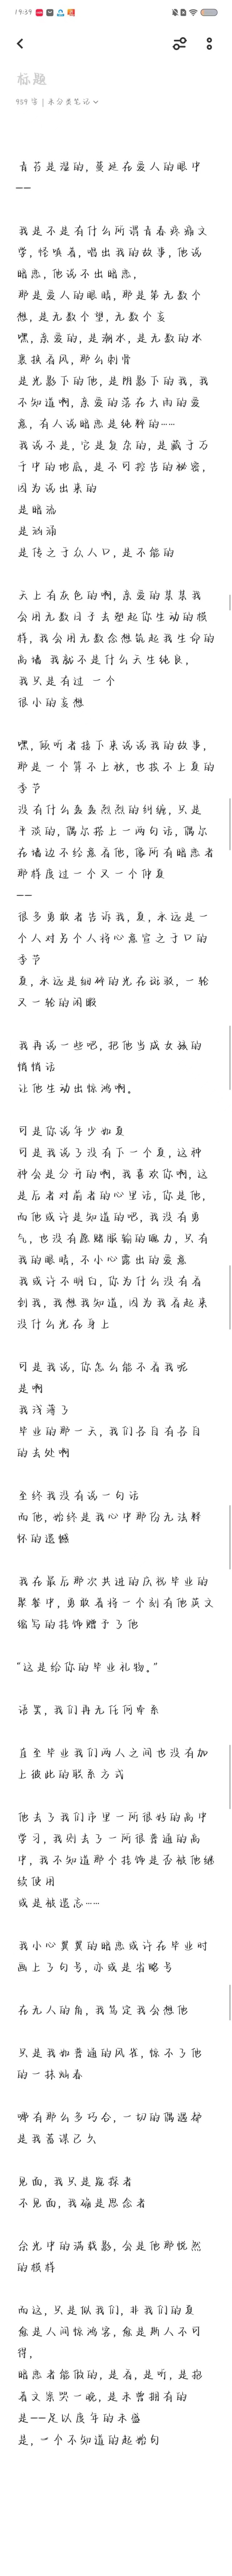 19:39
标题
959 字 | 未分类笔记
青苔是湿的, 蔓延在爱人的眼中
——
我是不是有什么所谓青春疼痛文
学, 怪嗔着, 唱出我的故事, 他说
暗恋, 他说不出暗恋,
那是爱人的眼睛, 那是第无数个
想, 是无数个望, 无数个妄
嘿, 亲爱的, 是潮水, 是无数的水
裹挟着风, 那么刺骨
是光影下的他, 是阴影下的我, 我
不知道啊, 亲爱的落在大雨的爱
意, 有人说暗恋是纯粹的……
我说不是, 它是复杂的, 是藏于万
千中的地底, 是不可控告的秘密,
因为说出来的
是暗流
是汹涌
是传之于众人口, 是不能的
天上有灰色的啊, 亲爱的某某我
会用无数日子去塑起你生动的模
样, 我会用无数念想筑起我生命的
高墙 我就不是什么天生纯良,
我只是有过 一个
很小的妄想
嘿, 倾听者接下来说说我的故事,
那是一个算不上秋, 也挨不上夏的
季节
没有什么轰轰烈烈的纠缠, 只是
平淡的, 偶尔搭上一两句话, 偶尔
在墙边不经意看他, 像所有暗恋者
那样度过一个又一个仲夏
——
很多勇敢者告诉我, 夏, 永远是一
个人对另个人将心意宣之于口的
季节
夏, 永远是细碎的光在斑驳, 一轮
又一轮的闲暇
我再说一些吧, 把他当成女孩的
悄悄话
让他生动出惊鸿啊。
可是你说年少如夏
可是我说了没有下一个夏, 这种
种会是分开的啊, 我喜欢你啊, 这
是后者对前者的心里话, 你是他,
而他或许是知道的吧, 我没有勇
气, 也没有愿赌服输的魄力, 只有
我的眼睛, 不小心露出的爱意
我或许不明白, 你为什么没有看
到我, 我想我知道, 因为我看起来
没什么光在身上
可是我说, 你怎么能不看我呢
是啊
我浅薄了
毕业的那一天, 我们各自有各自
的去处啊
至终我没有说一句话
而他, 始终是我心中那份无法释
怀的遗憾
我在最后那次共进的庆祝毕业的
聚餐中, 勇敢着将一个刻有他英文
缩写的挂饰赠予了他
“这是给你的毕业礼物。”
语罢, 我们再无任何牵系
直至毕业我们两人之间也没有加
上彼此的联系方式
他去了我们市里一所很好的高中
学习, 我则去了一所很普通的高
中, 我不知道那个挂饰是否被他继
续使用
或是被遗忘……
我小心翼翼的暗恋或许在毕业时
画上了句号, 亦或是省略号
在无人的角, 我笃定我会想他
只是我如普通的风雀, 惊不了他
的一抹灿春
哪有那么多巧合, 一切的偶遇都
是我蓄谋已久
见面, 我只是窥探者
不见面, 我确是思念者
余光中的满载影, 会是他那悦然
的模样
而这, 只是似我们, 非我们的夏
愈是人间惊鸿客, 愈是斯人不可
得,
暗恋者能做的, 是看, 是听, 是抱
着文案哭一晚, 是未曾拥有的
是——足以度年的未盛
是, 一个不知道的起始句